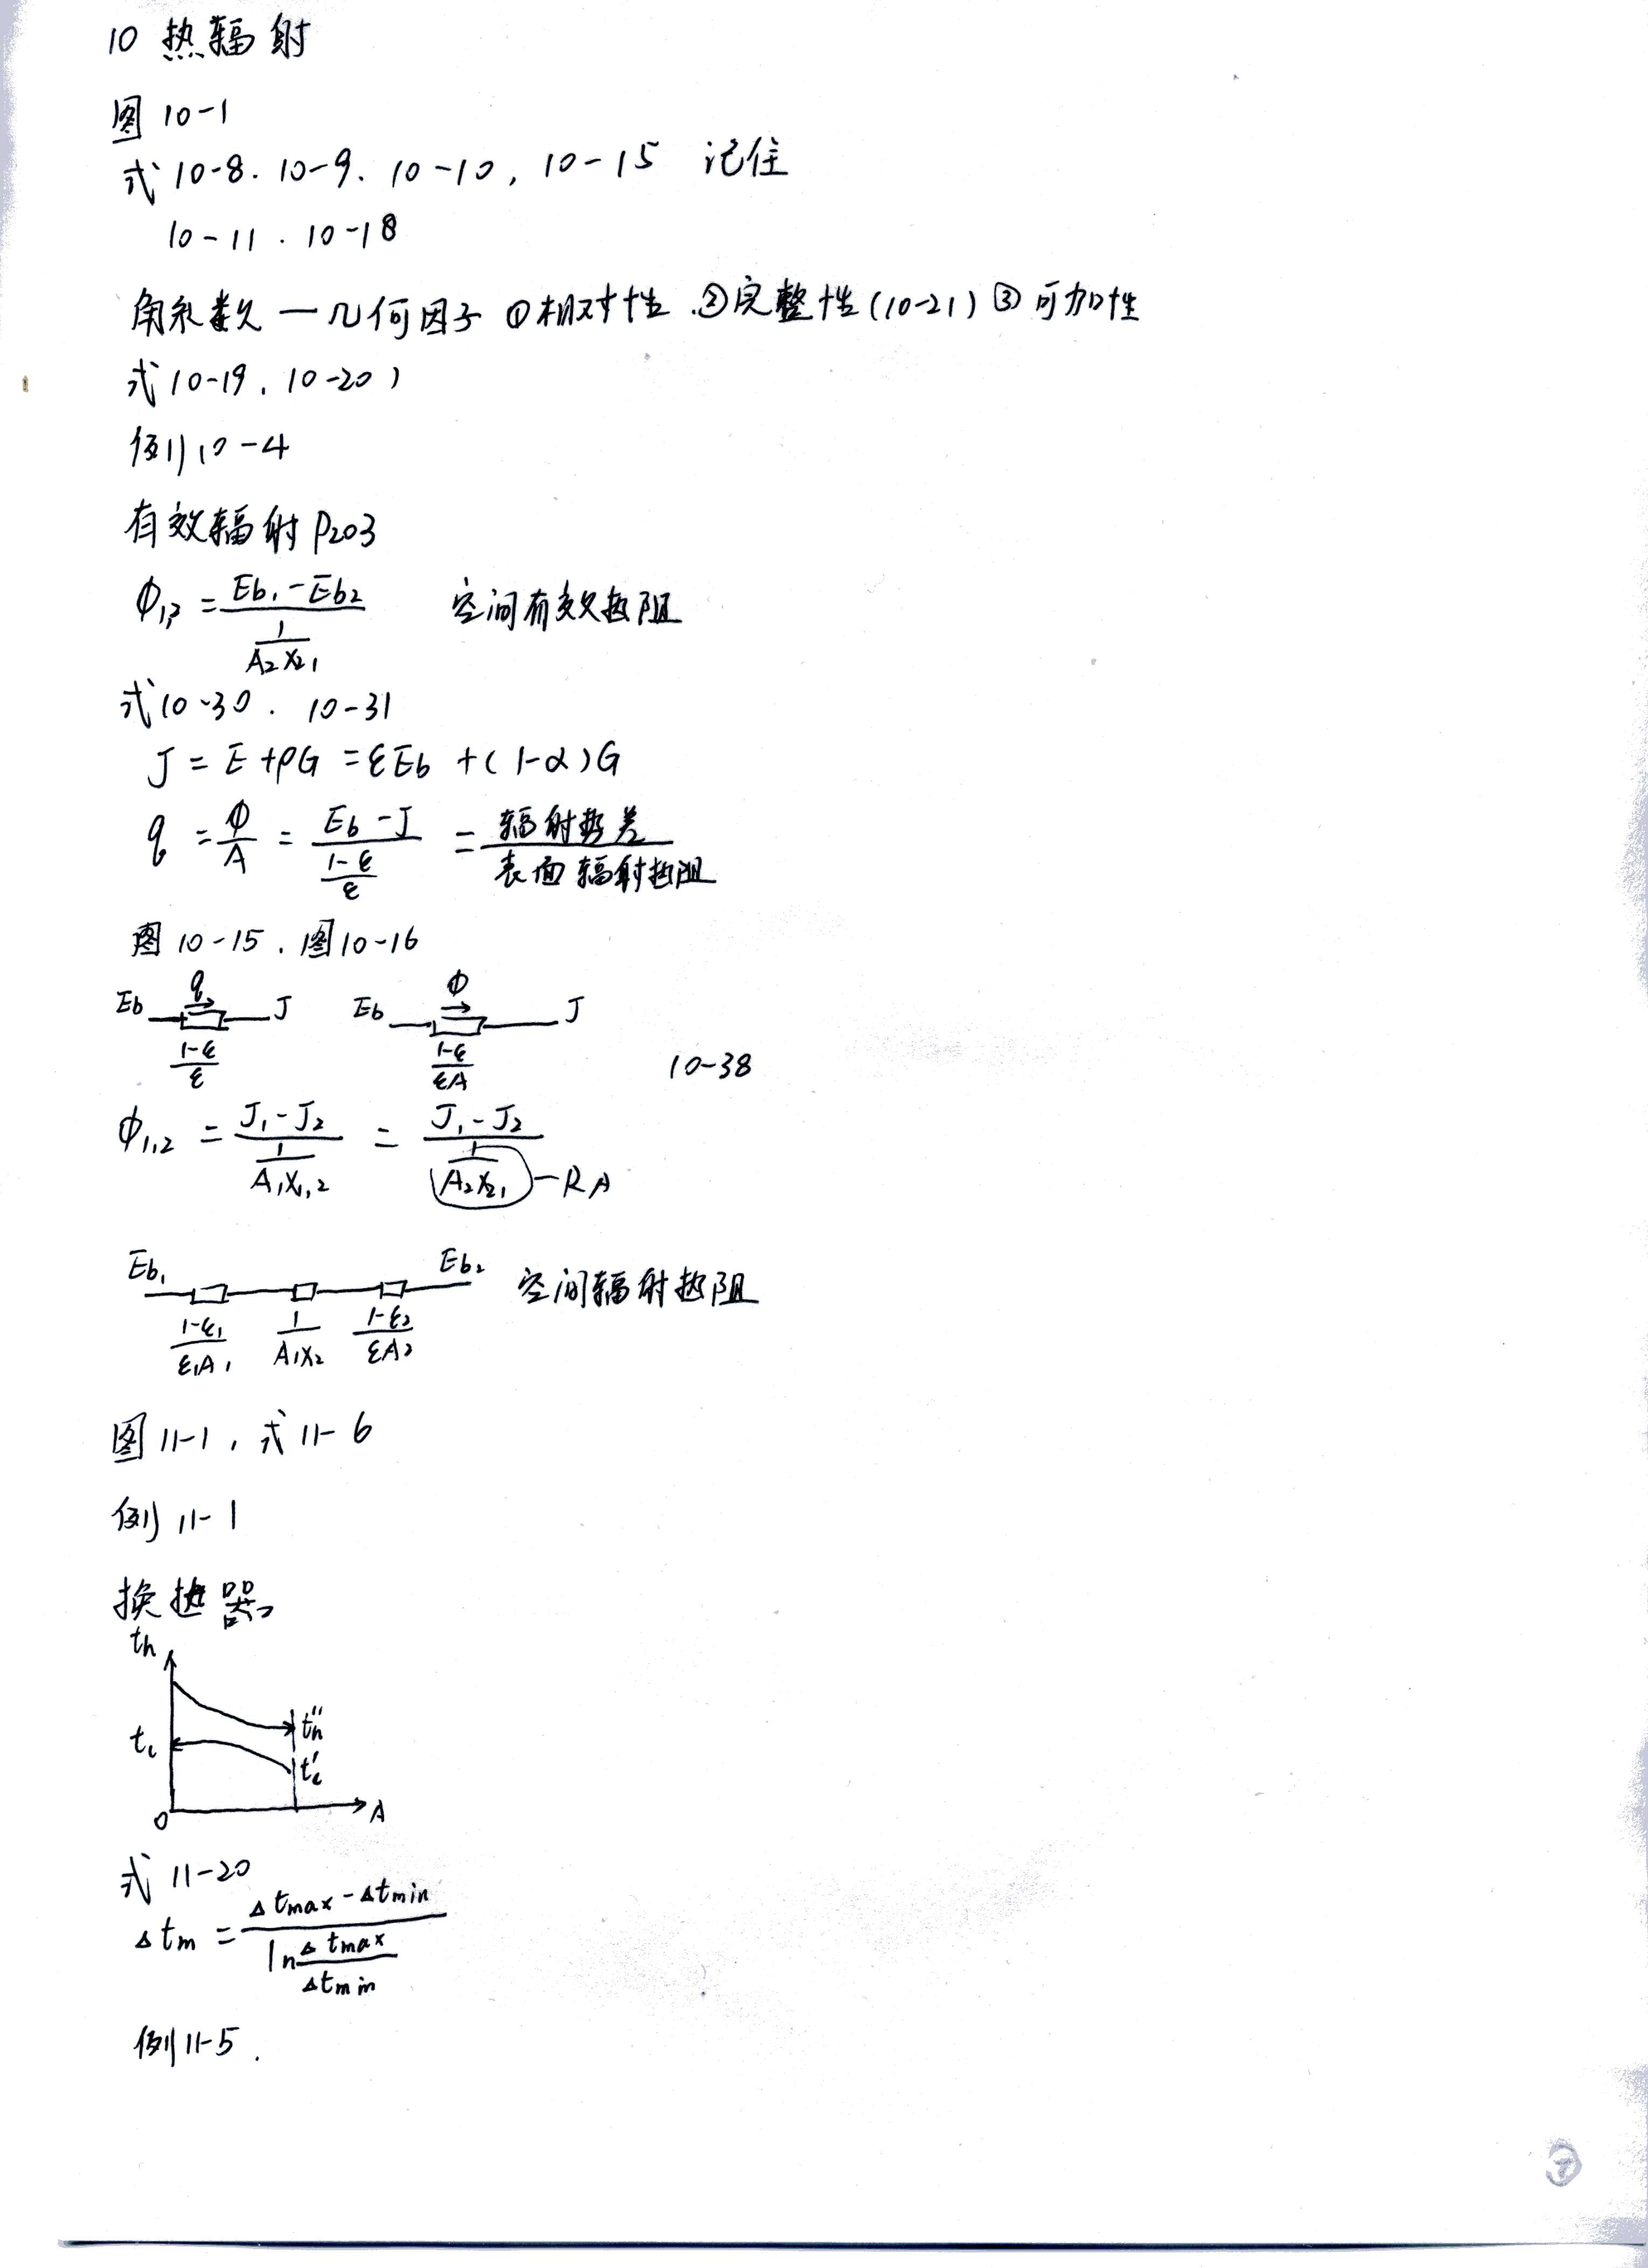 10 热辐射
图 10-1
式 10-8. 10-9. 10-10, 10-15 记住
10-11 . 10-18
角系数 — 几何因子 ①相对性 .②完整性(10-21) ③可加性
式10-19, 10-20)
例10-4
有效辐射 P203
Φ1,2 = (Eb1 - Eb2) / (1/(A2X2,1)) 空间有效热阻
式10-30. 10-31
J = E + ρG = εEb + (1-α)G
q = Φ/A = (Eb - J) / ((1-ε)/ε) = 辐射势差/表面辐射热阻
图10-15. 图10-16
Eb q J Eb Φ J
(1-ε)/ε (1-ε)/(εA) 10-38
Φ1,2 = (J1 - J2) / (1/(A1X1,2)) = (J1 - J2) / (1/(A2X2,1)) — RA
Eb1 Eb2 空间辐射热阻
(1-ε1)/(ε1A1) 1/(A1X2) (1-ε2)/(εA2)
图 11-1, 式 11-6
例 11-1
换热器
th
th''
tc
tc'
0 A
式 11-20
Δtm = (Δtmax - Δtmin) / (ln Δtmax/Δtmin)
例11-5.
⑦